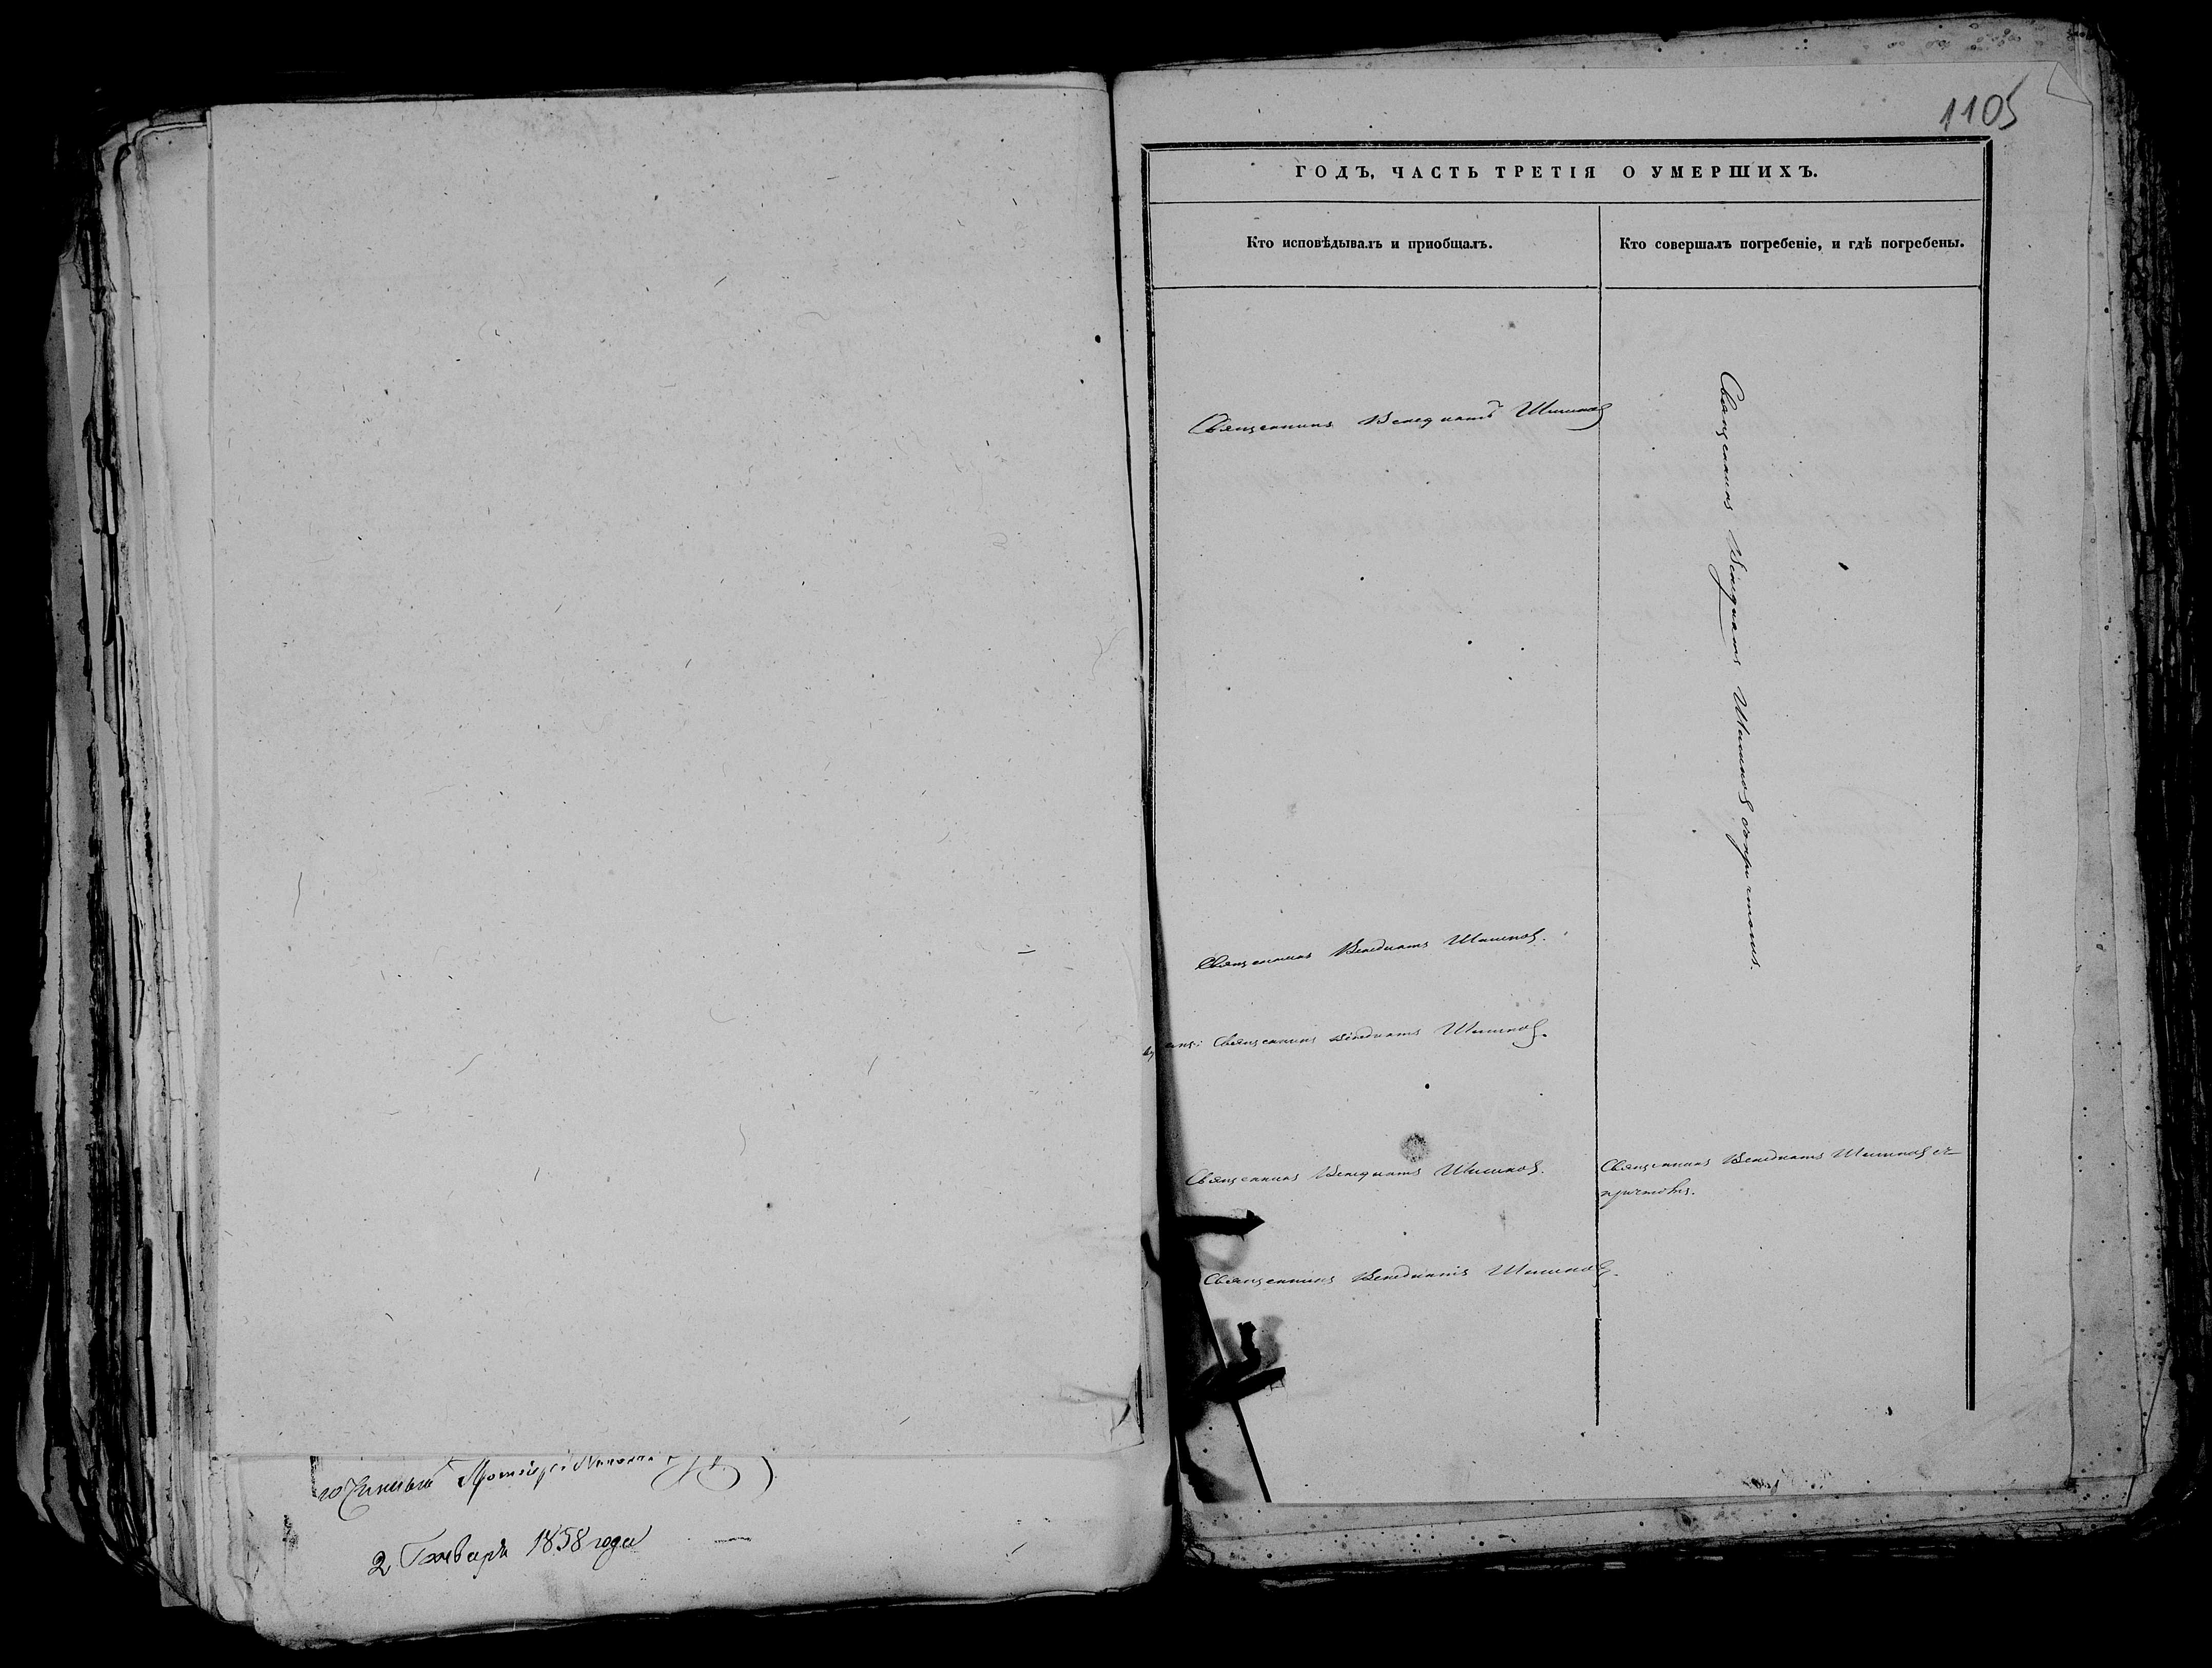 1105
ГОДЪ, ЧАСТЬ ТРЕТІЯ О УМЕРШИХЪ.
Кто исповѣдывалъ и приобщалъ.
Кто совершалъ погребеніе, и гдѣ погребены.
Священникъ Венедиктъ Шишков
Священникъ Венедиктъ Шишков съ причтомъ.
Священникъ Венедиктъ Шишков.
Священникъ Венедиктъ Шишков.
Священникъ Венедиктъ Шишков.
Священникъ Венедиктъ Шишков съ
причтомъ.
Священникъ Венедиктъ Шишков.
2 Генваря 1858 года